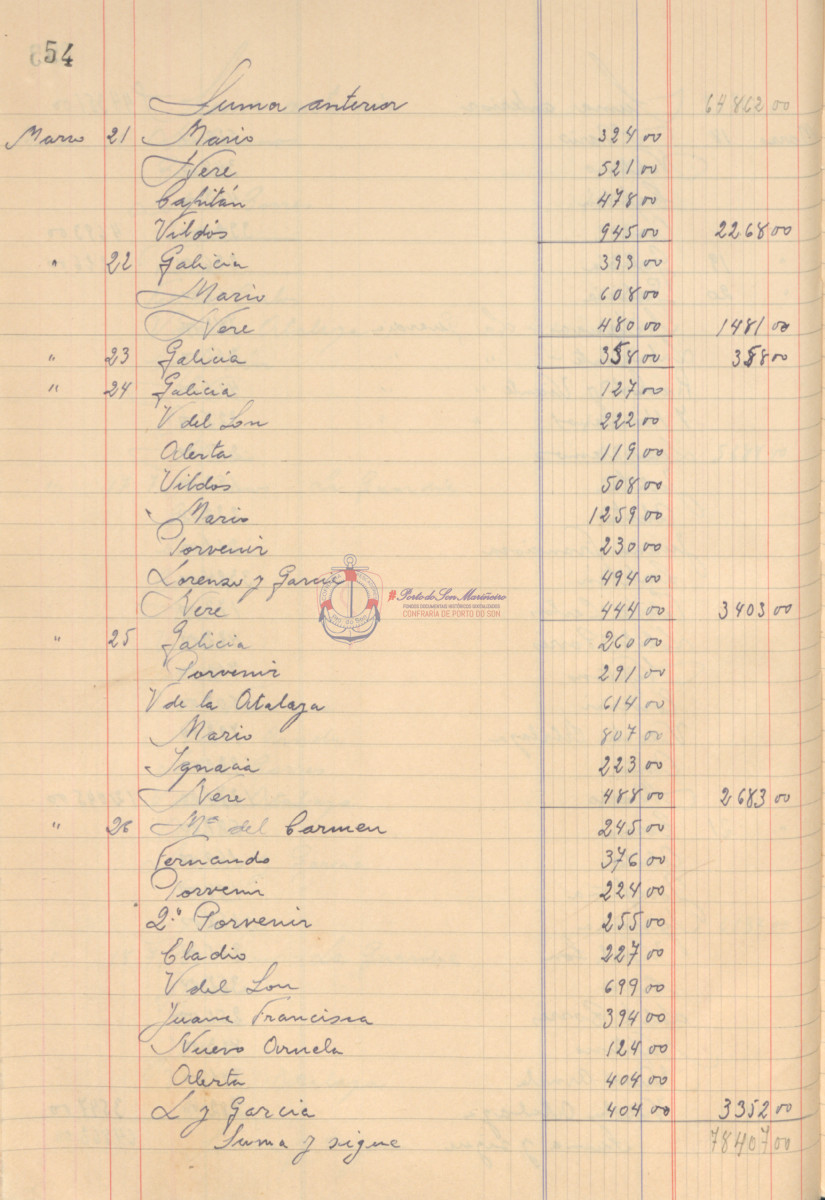 54
Suma anterior 64862 00
Marzo 21 Mario 324 00
Nere 521 00
Capitán 478 00
Vildós 945 00 2268 00
" 22 Galicia 393 00
Mario 608 00
Nere 480 00 1481 00
" 23 Galicia 358 00 358 00
" 24 Galicia 127 00
V del Son 222 00
Alerta 119 00
Vildós 508 00
Mario 1259 00
Porvenir 230 00
Lorenzo y García 494 00
Nere 444 00 3403 00
Porto do Son Mariñeiro
FONDOS DOCUMENTAIS HISTÓRICOS DIXITALIZADOS
CONFRARIA DE PORTO DO SON
" 25 Galicia 260 00
Porvenir 291 00
V de la Atalaya 614 00
Mario 807 00
Ignacia 223 00
Nere 488 00 2683 00
" 26 Mª del Carmen 245 00
Fernando 376 00
Porvenir 224 00
2º Porvenir 255 00
Eladio 227 00
V del Son 699 00
Juana Francisca 394 00
Nuevo 124 00
Alerta 404 00
L y Garcia 404 00 3352 00
Suma y sigue 78407 00